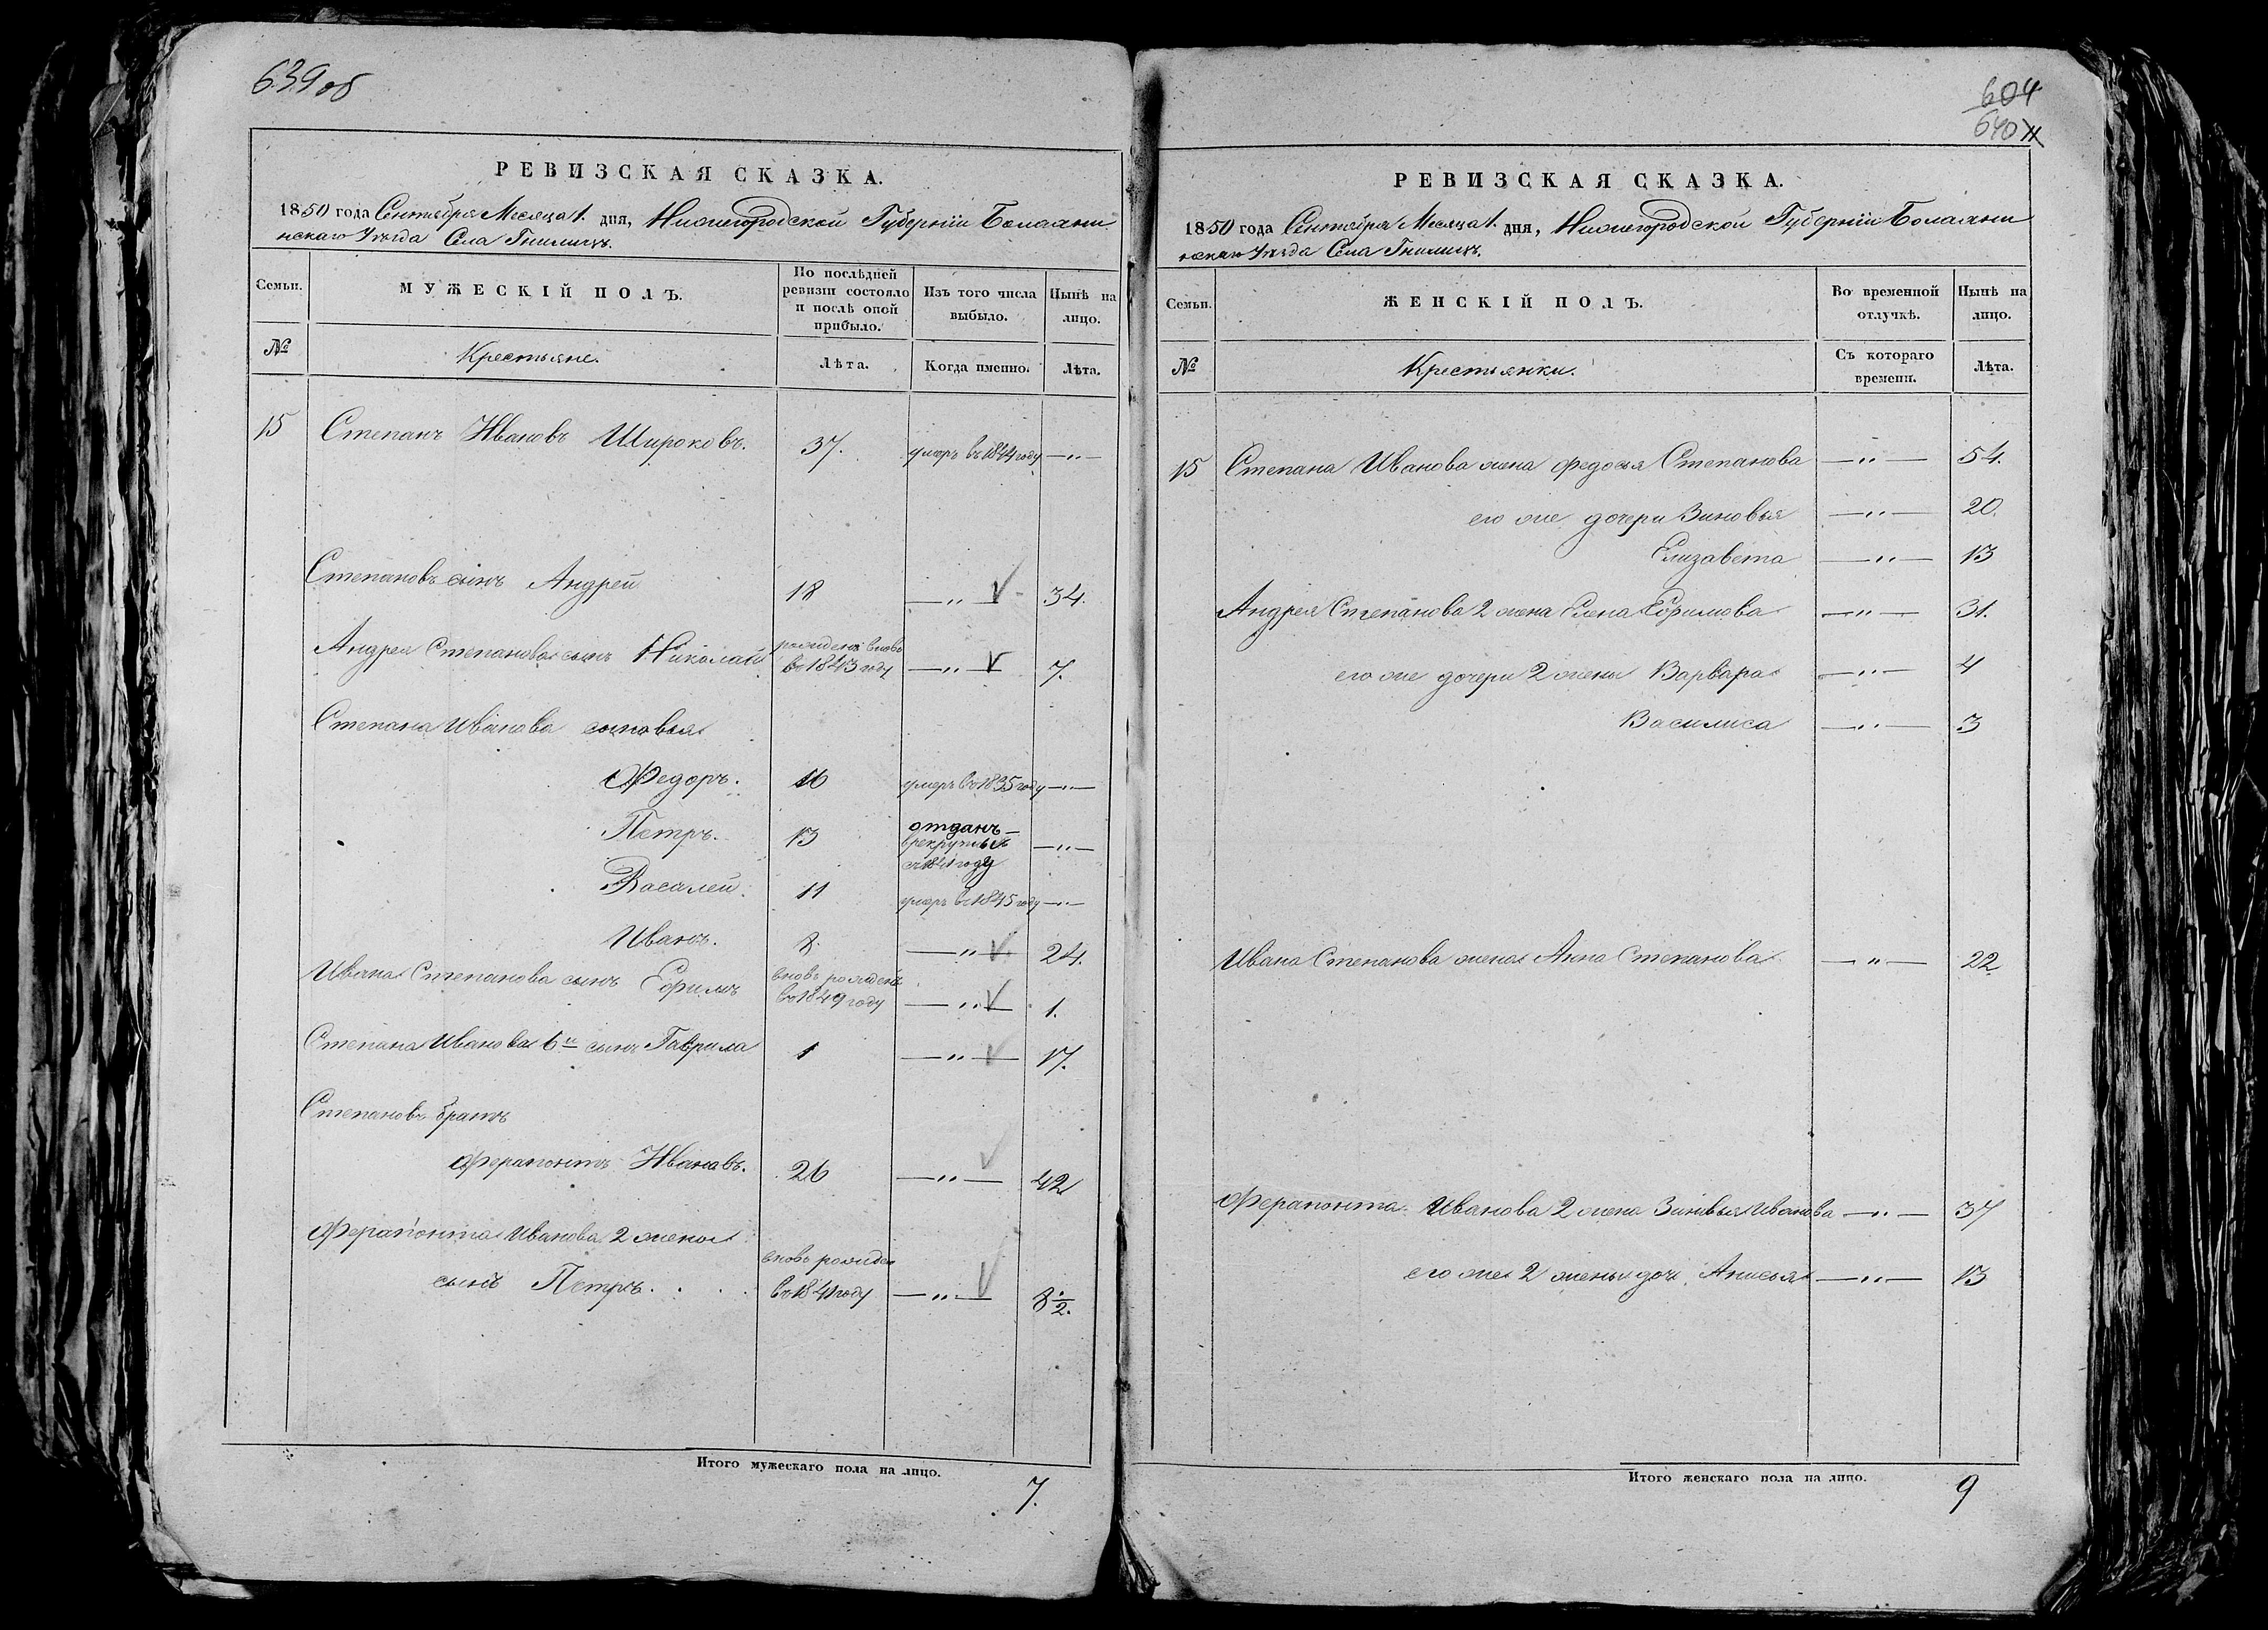 639 об
РЕВИЗСКАЯ СКАЗКА.
1850 года Сентября Месяца 1. дня, Нижегородской Губерніи Балахни
нскаго Уѣзда Села Гнилицъ.
Семьи.
МУЖЕСКІЙ ПОЛЪ.
По послѣдней
ревизіи состояло
и послѣ оной
прибыло.
Изъ того числа
выбыло.
Нынѣ на
лицо.
№
Крестьяне.
Лѣта.
Когда именно.
Лѣта.
15 Степанъ Ивановъ Широковъ. 37. умеръ въ 1844 году —"—
Степановъ сынъ Андрей 18 —"— 34.
Андрея Степанова сынъ Николай рожденъ вновь
въ 1843 году —"— 7.
Степана Иванова сыновья
Федоръ. 16 умеръ въ 1835 году —"—
Петръ. 13 отданъ
врекруты
въ 1841 году —"—
Василей 11 умеръ въ 1845 году —"—
Иванъ. 8. —"— 24.
Ивана Степанова сынъ Ефимъ вновь рожденъ
въ 1849 году —"— 1.
Степана Иванова 6й сынъ Гаврила 1 —"— 17.
Степановъ братъ
Ферапонтъ Ивановъ. 26 —"— 42
Ферапонта Иванова 2 жены
сынъ Петръ. . . . вновь рожден
въ 1841 году —"— 8 1/2.
Итого мужескаго пола на лицо. 7.
604
640
РЕВИЗСКАЯ СКАЗКА.
1850 года Сентября Месяца 1. дня, Нижегородской Губерніи Балахни
нскаго Уѣзда Села Гнилицъ.
Семьи.
ЖЕНСКІЙ ПОЛЪ.
Во временной
отлучкѣ.
Нынѣ на
лицо.
№
Крестьянки.
Съ котораго
времени.
Лѣта.
15 Степана Иванова жена Федосья Степанова —"— 54.
его же дочери Зиновья —"— 20.
Елизавета —"— 13
Андрея Степанова 2 жена Елена Ефимова —"— 31.
его же дочери 2 жены Варвара —"— 4
Василиса —"— 3
Ивана Степанова жена Анна Степанова —"— 22
Ферапонта Иванова 2 жена Зиновья Иванова —"— 37
его же 2 жены доч. Анисья —"— 13
Итого женскаго пола на лицо. 9